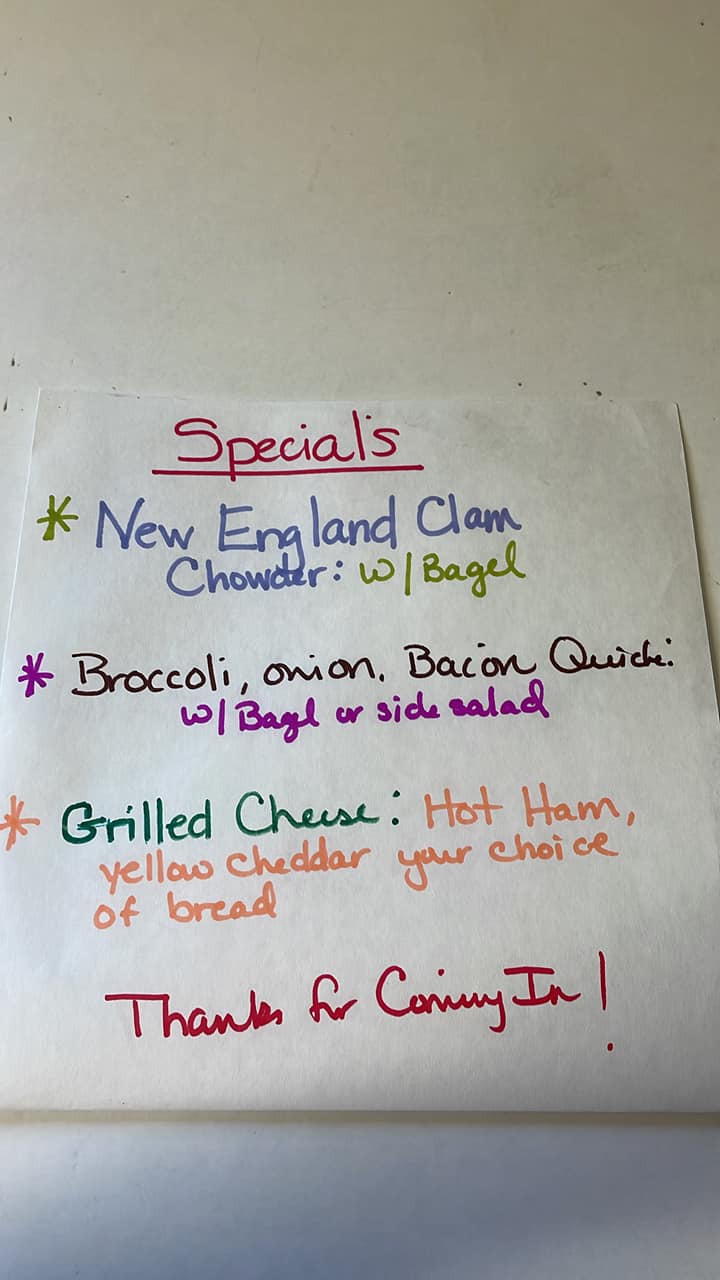 Special's
* New England Clam
Chowder: w/Bagel
* Broccoli, onion. Bacon Quiche:
w/Bagel or side salad
* Grilled Cheese: Hot Ham,
yellow cheddar your choice
of bread
Thanks for Coming In!